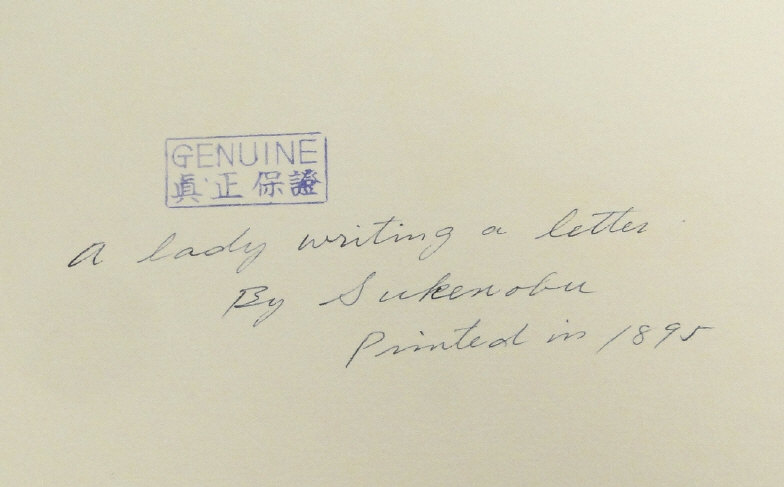 GENUINE
眞正保證
A lady writing a letter
By Sukenobu
Printed in 1895